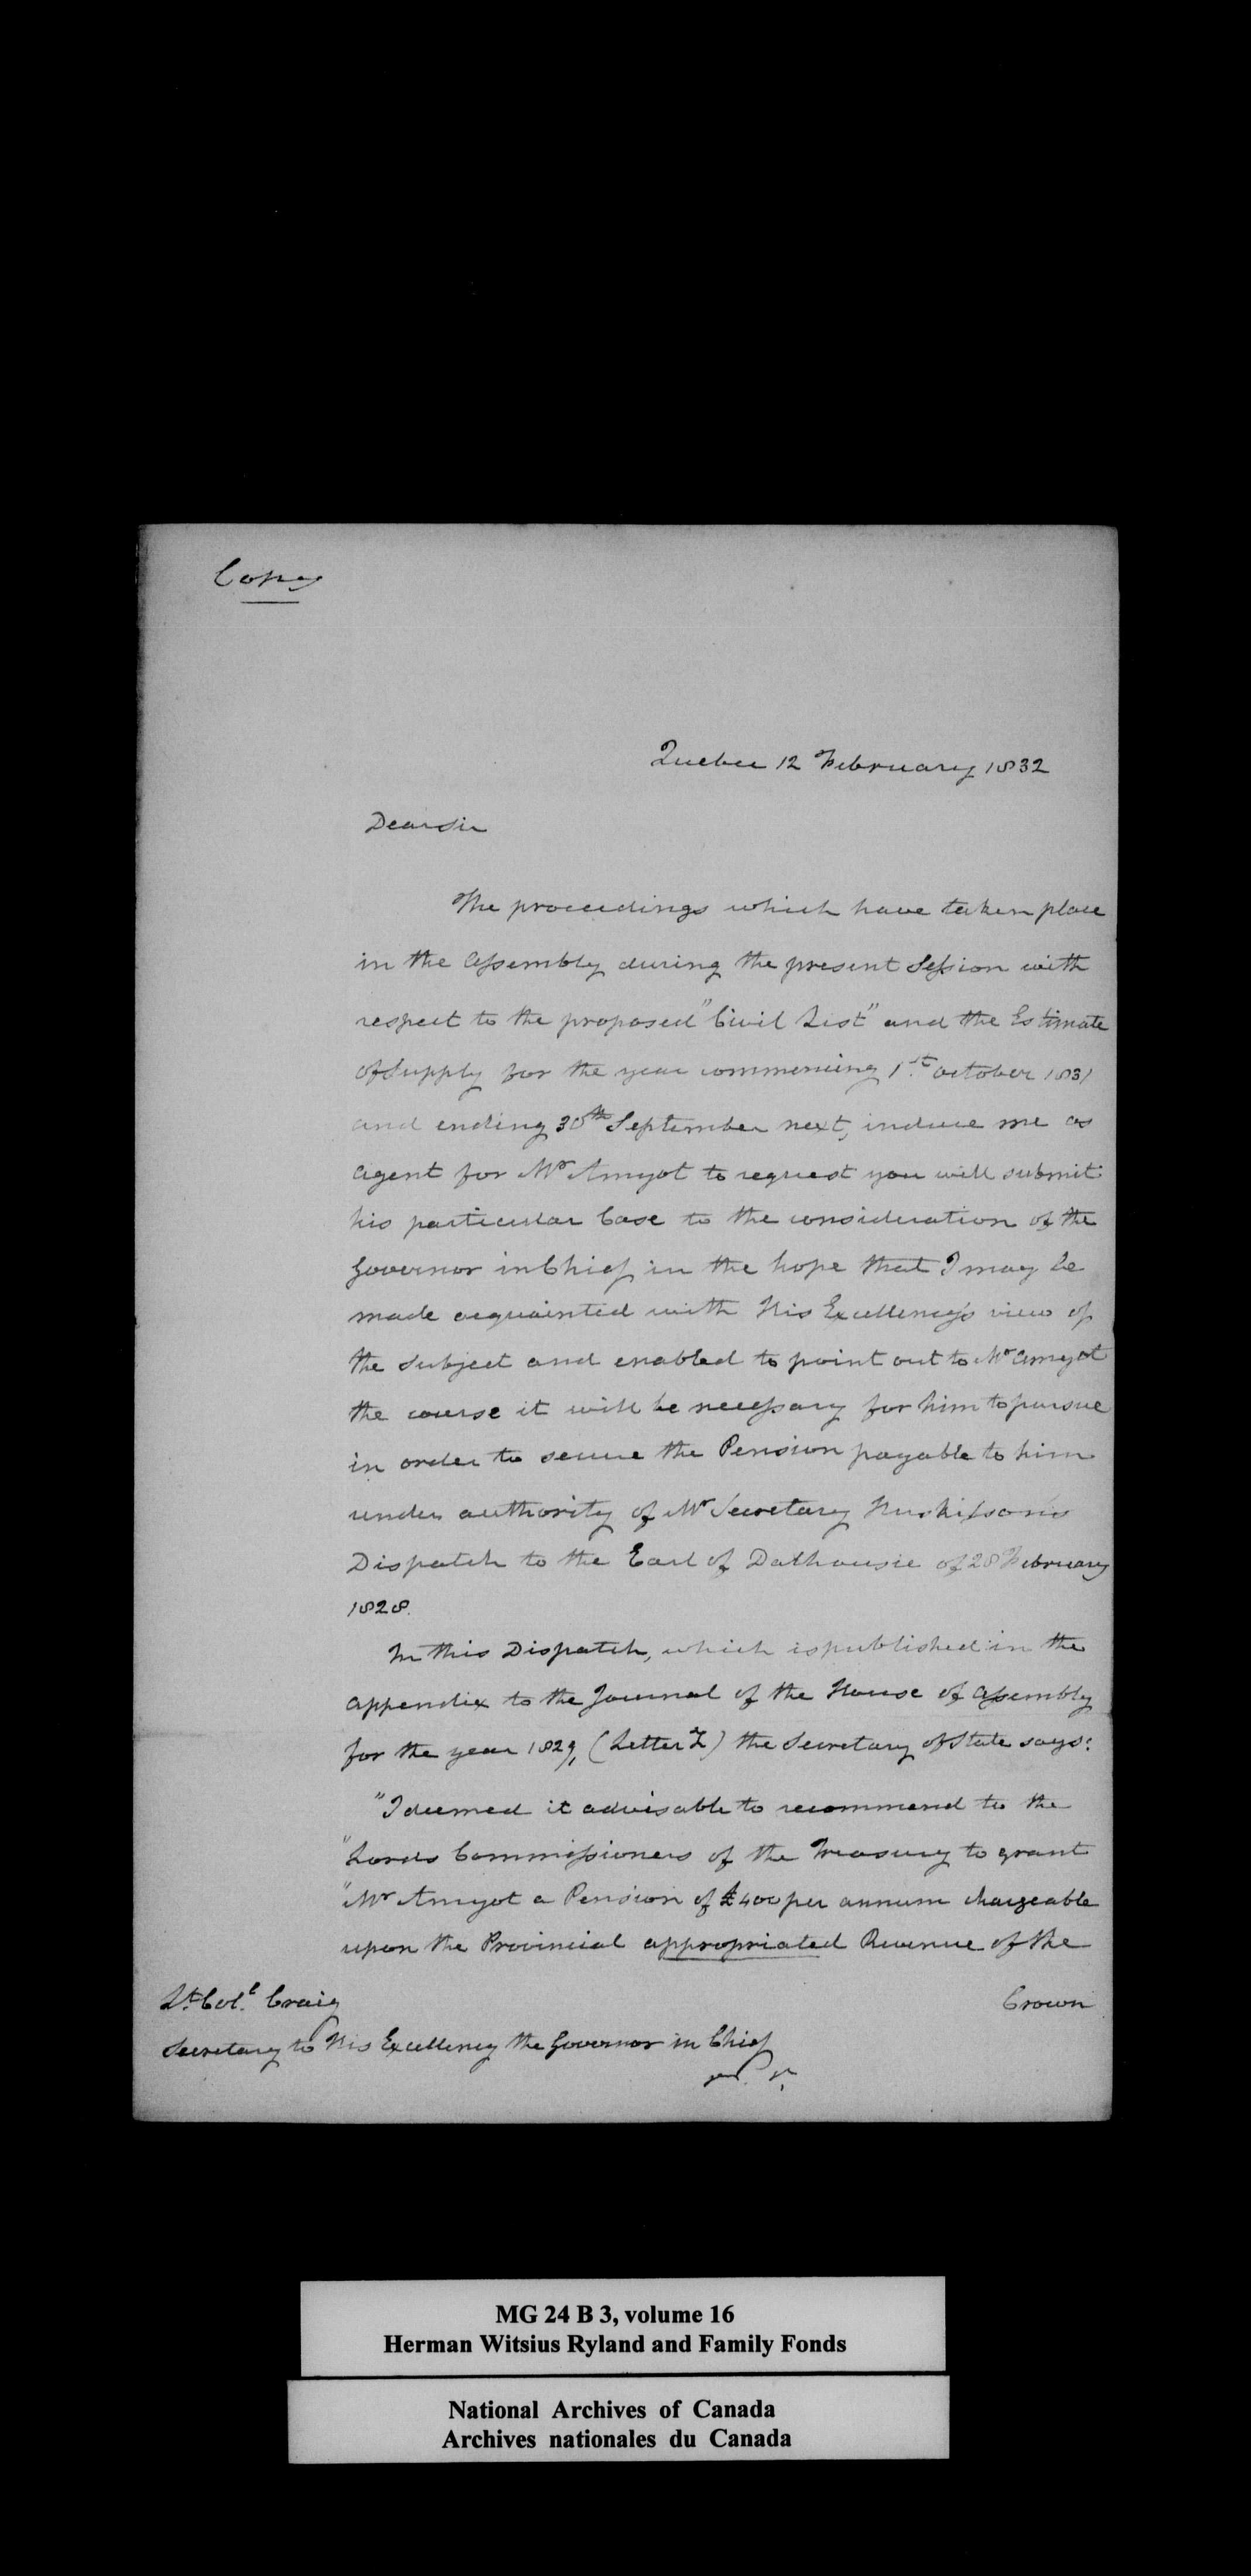 Copy
Quebec 12 February 1832
Dear Sir
The proceedings which have taken place
in the Assembly during the present Session with
respect to the proposed "Civil List" and the Estimate
of Supply for the year commencing 1st October 1831
and ending 30th September next, induce me as
agent for Mr Amyot to request you will submit
his particular Case to the consideration of the
Governor in Chief in the hope that I may be
made acquainted with His Excellency's view of
the subject and enabled to point out to Mr Amyot
the course it will be necessary for him to pursue
in order to secure the Pension payable to him
under authority of Mr Secretary Huskisson's
Dispatch to the Earl of Dalhousie of 28 February
1828.
In this Dispatch, which is published in the
appendix to the Journal of the House of Assembly
for the year 1829, (Letter ) the Secretary of State says:
"I deemed it advisable to recommend to the
"Lords Commissioners of the Treasury to grant
"Mr Amyot a Pension of £400 per annum chargeable
upon the Provincial appropriated Revenue of the
Crown
Lt. Col. Craig
Secretary to His Excellency the Governor in Chief
MG 24 B 3, volume 16
Herman Witsius Ryland and Family Fonds
National Archives of Canada
Archives nationales du Canada